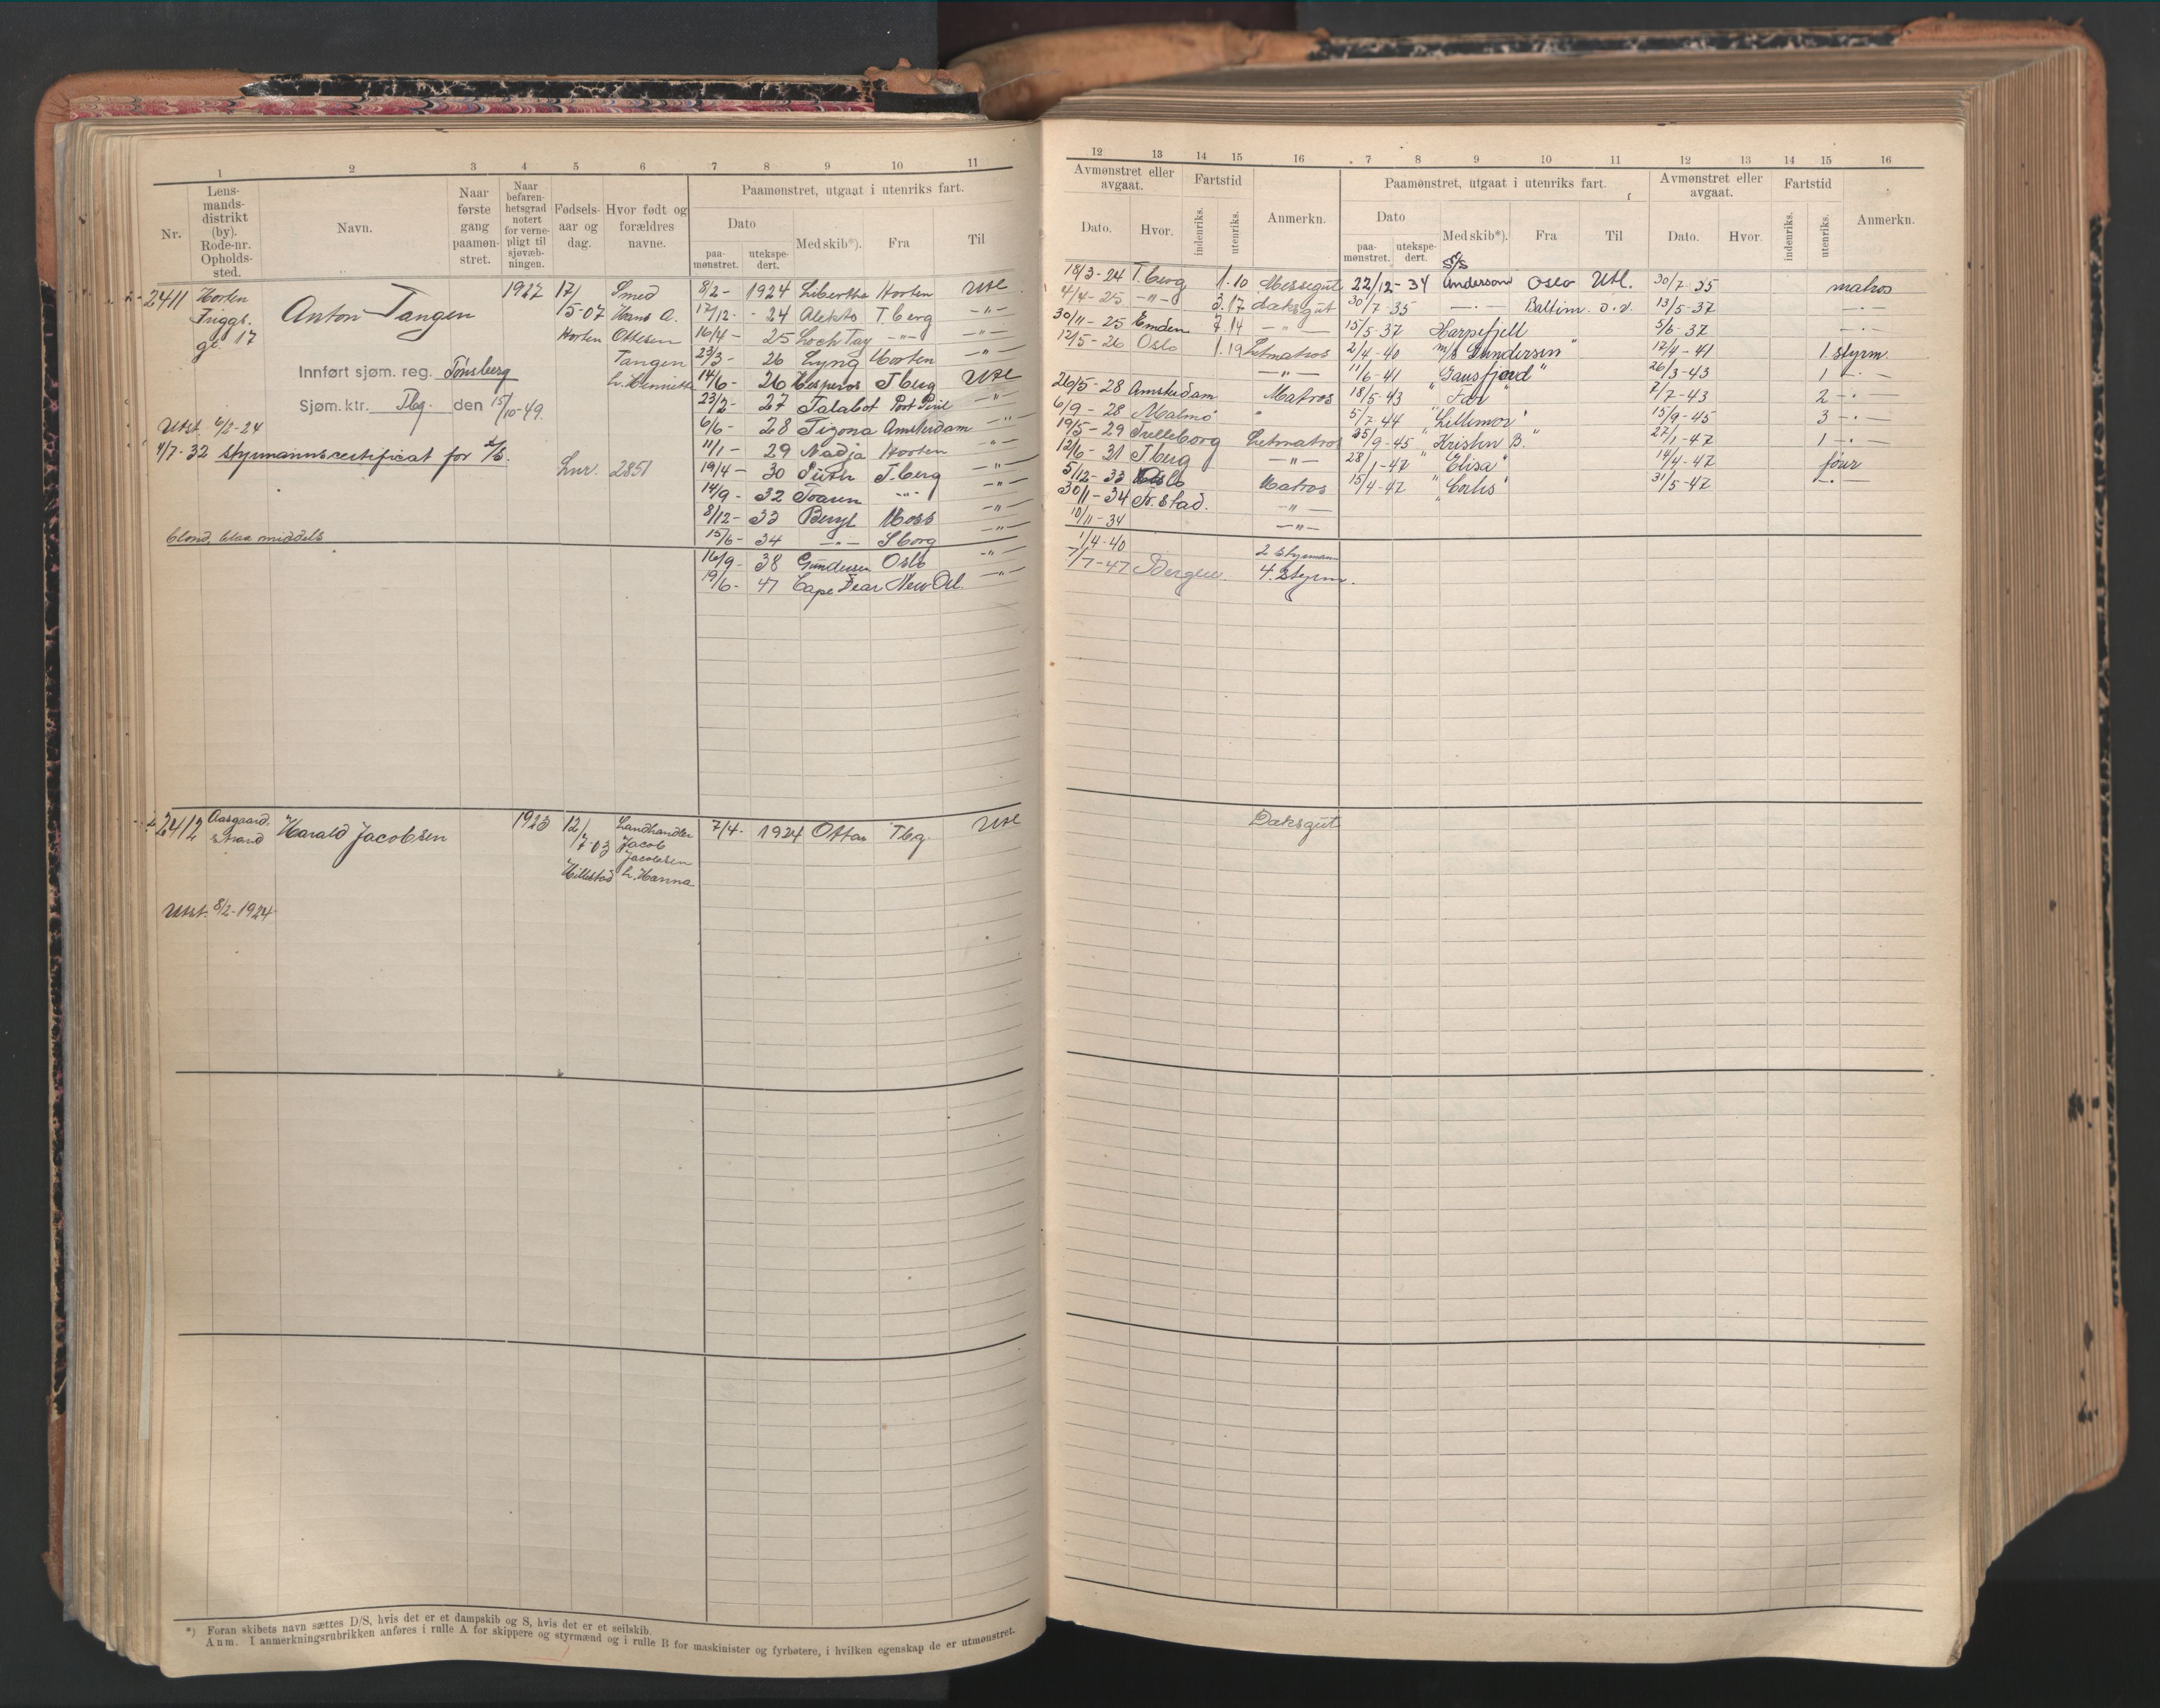 1 2 3 4 5 6 7 8 9 10 11
Nr.
Lens-
mands-
distrikt
(by).
Rode-nr.
Opholds-
sted.
Navn.
Naar
første
gang
paamøn-
stret.
Naar
befaren-
hetsgrad
notert
for verne-
pligt til
sjøvæb-
ningen.
Fødsels-
aar og
dag.
Hvor født og
forældres
navne.
Paamønstret, utgaat i utenriks fart.
Dato
paa-
mønstret.
utekspe-
dert.
Med skib*).
Fra
Til
2411 Horten
Friggs.
gt. 17
Anton Tangen
1927
17/
5-07
Horten
Smed
Hans A.
Ottesen
Tangen
h. Henriette
Innført sjøm. reg. Tønsberg
Sjøm.ktr. Tbg. den 15/10-49.
Utst. 6/2-24
4/7-32 Styrmannscertificat for
Lnr. 2851
blond, blaa middels
8/2- 1924 Libertha Horten Utl
17/12- -24 Alekto T.berg -"-
16/4- 25 Loch Tay -"- -"-
23/3- 26 Lyng Horten -"-
14/6- 26 Hesperos T.berg Utl
23/2- 27 Talabot Port Pirie -"-
6/6- 28 Tizona Amsterdam -"-
11/1- 29 Nadja Horten -"-
19/4- 30 T.berg -"-
14/9- 32 Toaren -"- -"-
8/12- 33 Beryl Moss -"-
15/6- 34 -"- S.borg -"-
16/9- 38 Gundersen Oslo -"-
19/6- 47 Cape Fear New Orl.
2412 Aasgaard.
strand
Harald Jacobsen
1923
12/
7-03
Hillestad
Landhandler
Jacob
Jacobsen
h. Hanna
7/4- 1924 Ottar Tbg. Utl
Utst. 8/2-1924
*) Foran skibets navn sættes D/S, hvis det er et dampskib og S, hvis det er et seilskib.
Anm. I anmerkningsrubrikken anføres i rulle A for skippere og styrmænd og i rulle B for maskinister og fyrbøtere, i hvilken egenskap de er utmønstret.
12 13 14 15 16 7 8 9 10 11 12 13 14 15 16
Avmønstret eller
avgaat.
Dato.
Hvor.
Fartstid
indenriks.
utenriks.
Anmerkn.
Paamønstret, utgaat i utenriks fart.
Dato
paa-
mønstret.
utekspe-
dert.
Med skib*).
Fra
Til
Avmønstret eller
avgaat.
Dato.
Hvor.
Fartstid
indenriks.
utenriks.
Anmerkn.
18/3-24 T.berg 1.10 Messegut
4/4-25 -"- 3.17 daksgut
30/11-25 Emden 7.14 -"-
12/5-26 Oslo 1.19 Letmatros
-"-
26/5-28 Amsterdam Matros
6/9-28 Malmö "
19/5-29 Trelleborg Letmatros
12/6-31 T.berg -"-
5/12-33 Oslo Matros
30/1-34 Fr.stad. -"-
10/11-34 -"-
1/4-40 2 styrmann
7/7-47 Bergen. 4. Styrm.
S/S
22/12-34 Anderson Oslo Utl. 30/7-35 matros
30/7-35 -"- Baltim. o.v. 13/5-37 -"-
15/5-37 Harpefjell 5/6-37 -"-
2/4-40 m/s Gundersen" 17/4-41 1. styrm.
11/6-41 "Gausfjord" 26/3-43 1 -"-
18/5-43 " Far " 2/7-43 2 -"-
5/7-44 "Lillemor" 15/9-45 3 -"-
25/9-45 " Kristin B. " 27/1-47 1 -"-
28/1-47 " Elisa" 14/4-47
15/4-47 31/5-47 -"-
Daksgut